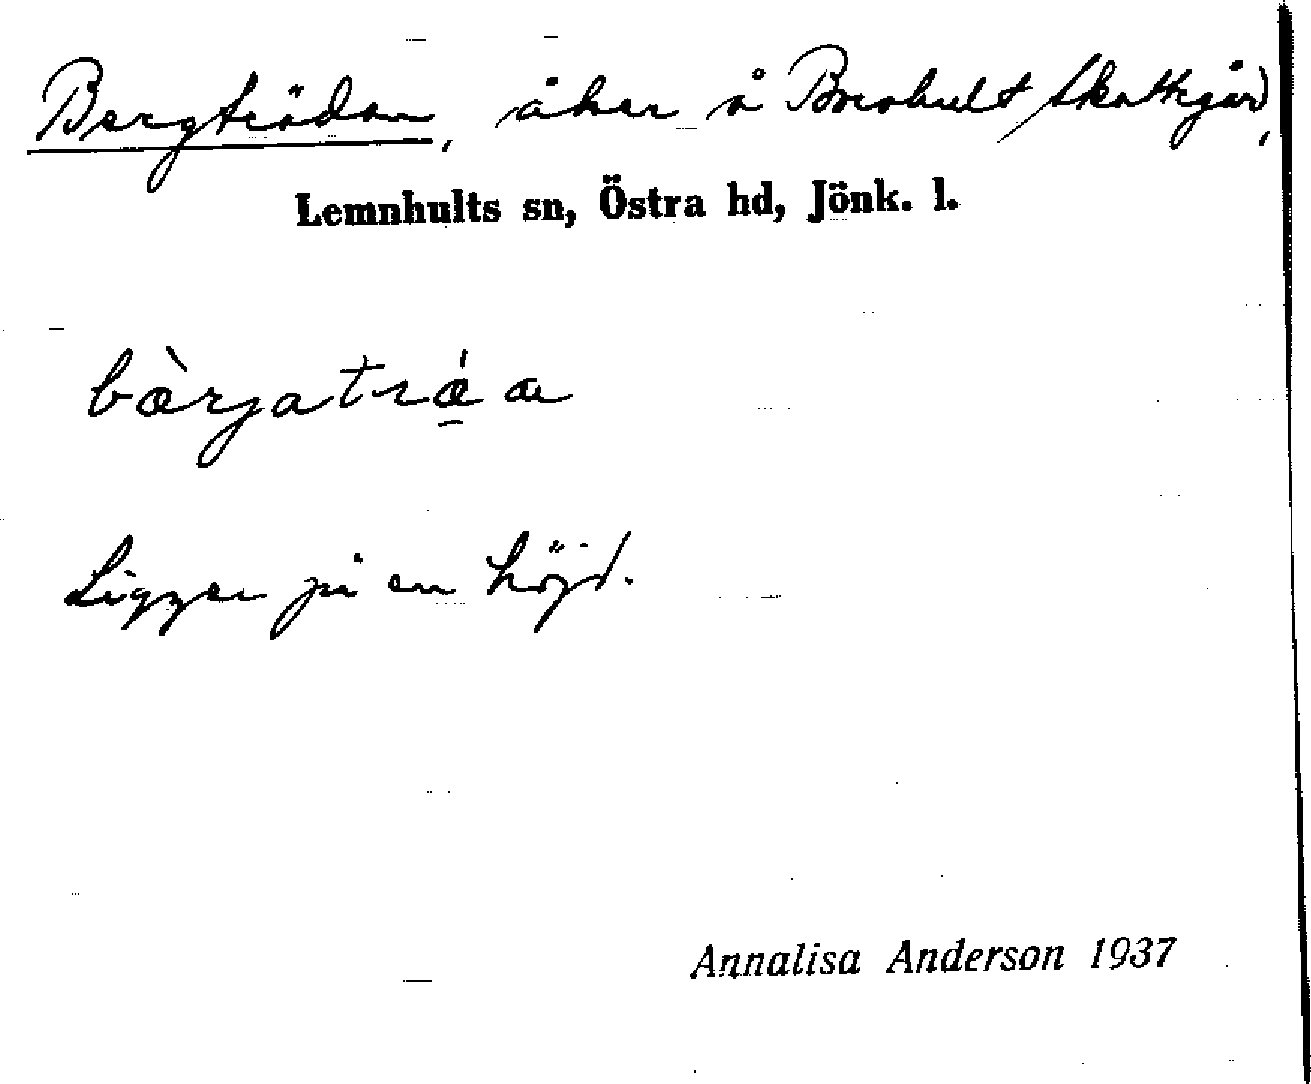 Bergträdan, åker å Broahult Skattegård,
Lemnhults sn, Östra hd, Jönk. l.
bàrjatrǽ a
Ligger på en höjd.
Annalisa Anderson 1937